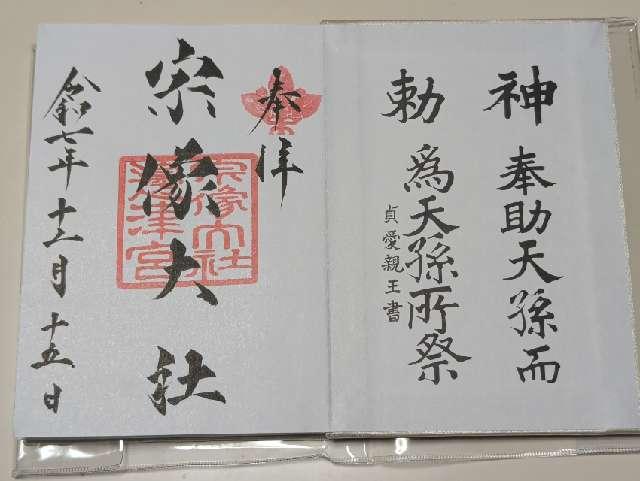 神 奉助天孫而
勅 爲天孫所祭
貞愛親王書
奉拝
宗像大社
宗像大社
邊津宮
令和七年十二月十五日